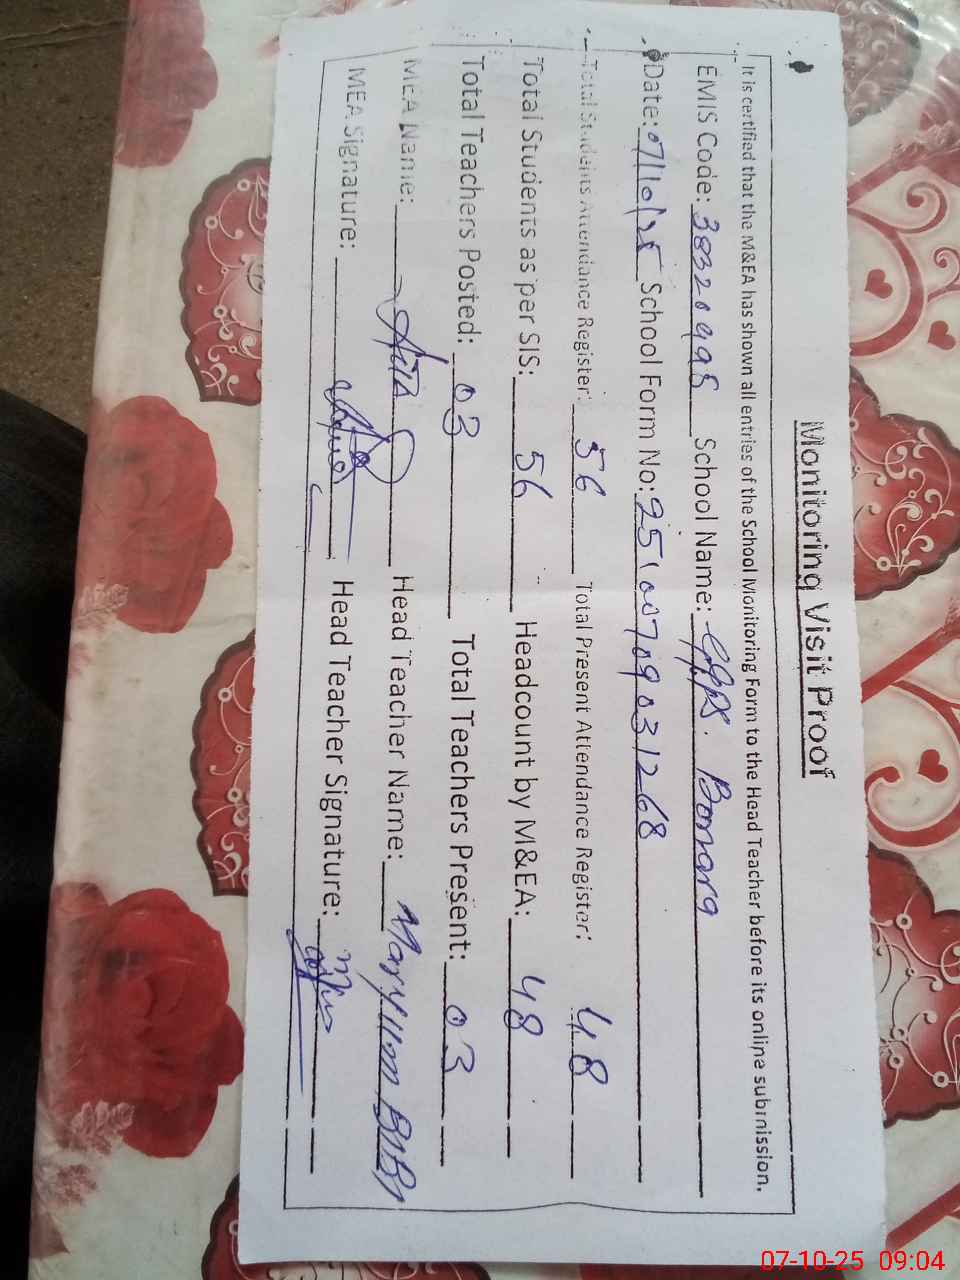 Monitoring Visit Proof
It is certified that the M&EA has shown all entries of the School Monitoring Form to the Head Teacher before its online submission.
EMIS Code: 38320495 School Name: GGPS. Bomara
Date: 07/10/25 School Form No: 25100709031268
Total Students Attendance Register: 56 Total Present Attendance Register: 48
Total Students as per SIS: 56 Headcount by M&EA: 48
Total Teachers Posted: 03 Total Teachers Present: 03
MEA Name: Head Teacher Name: Maryum BiBi
MEA Signature: Head Teacher Signature:
07-10-25 09:04